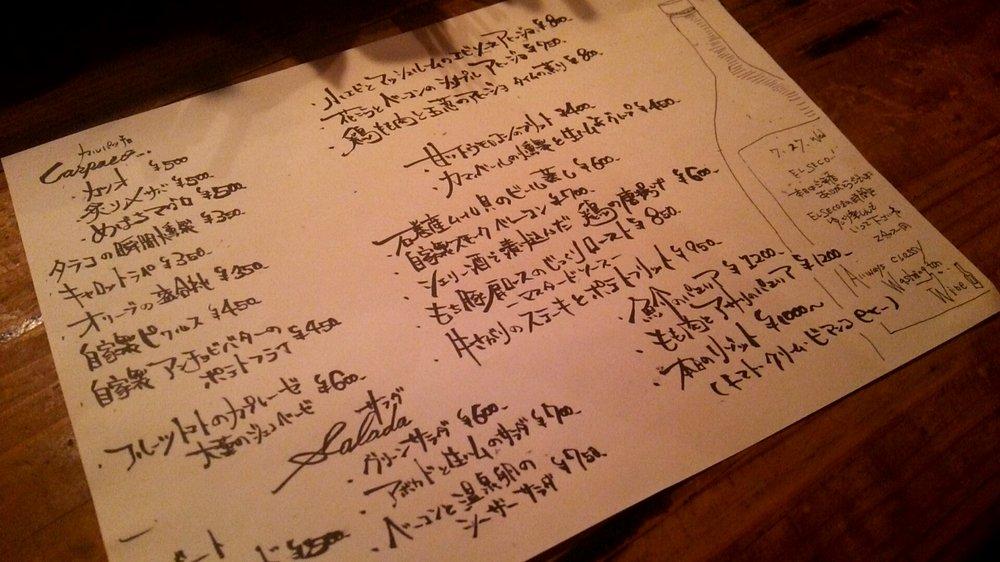 カルパッチョ
Carpaccio
カツオ ¥500
炙り〆サバ ¥500
めばちマグロ ¥500
タラコの瞬間燻製 ¥350
キャロットラペ ¥350
オリーブの盛合せ ¥350
自家製ピクルス ¥450
自家製アンチョビバターの ¥450
ポテトフライ
フルーツトマトのカプレーゼ ¥600
大葉のジェノベーゼ
サラダ
Salada
グリーンサラダ ¥600
アボカドと生ハムのサラダ ¥700
ベーコンと温泉卵の ¥700
シーザーサラダ
・小エビとマッシュルームのエビソースアヒージョ ¥800
・ベーコンのシンプルアヒージョ ¥700
・鶏もも肉と のアヒージョ タイムの香り ¥800
¥400
・カマンベールの燻製と生ハム ¥450
・石巻産ムール貝のビール蒸し ¥600
・自家製スモークベーコン ¥700
・シェリー酒を煮込んだ 鶏の唐揚げ ¥600
・もち豚肩ロースのじっくりロースト ¥850
マスタードソース
・牛さがりのステーキとポテトフリット ¥950
・魚介のパエリア ¥1200
・もも肉とアサリのパエリア ¥1200
・本日のリゾット ¥1000〜
(トマト・クリーム・ビアンコ etc-)
7.27. wed
EL SECO
Always classy
Washington
Wine